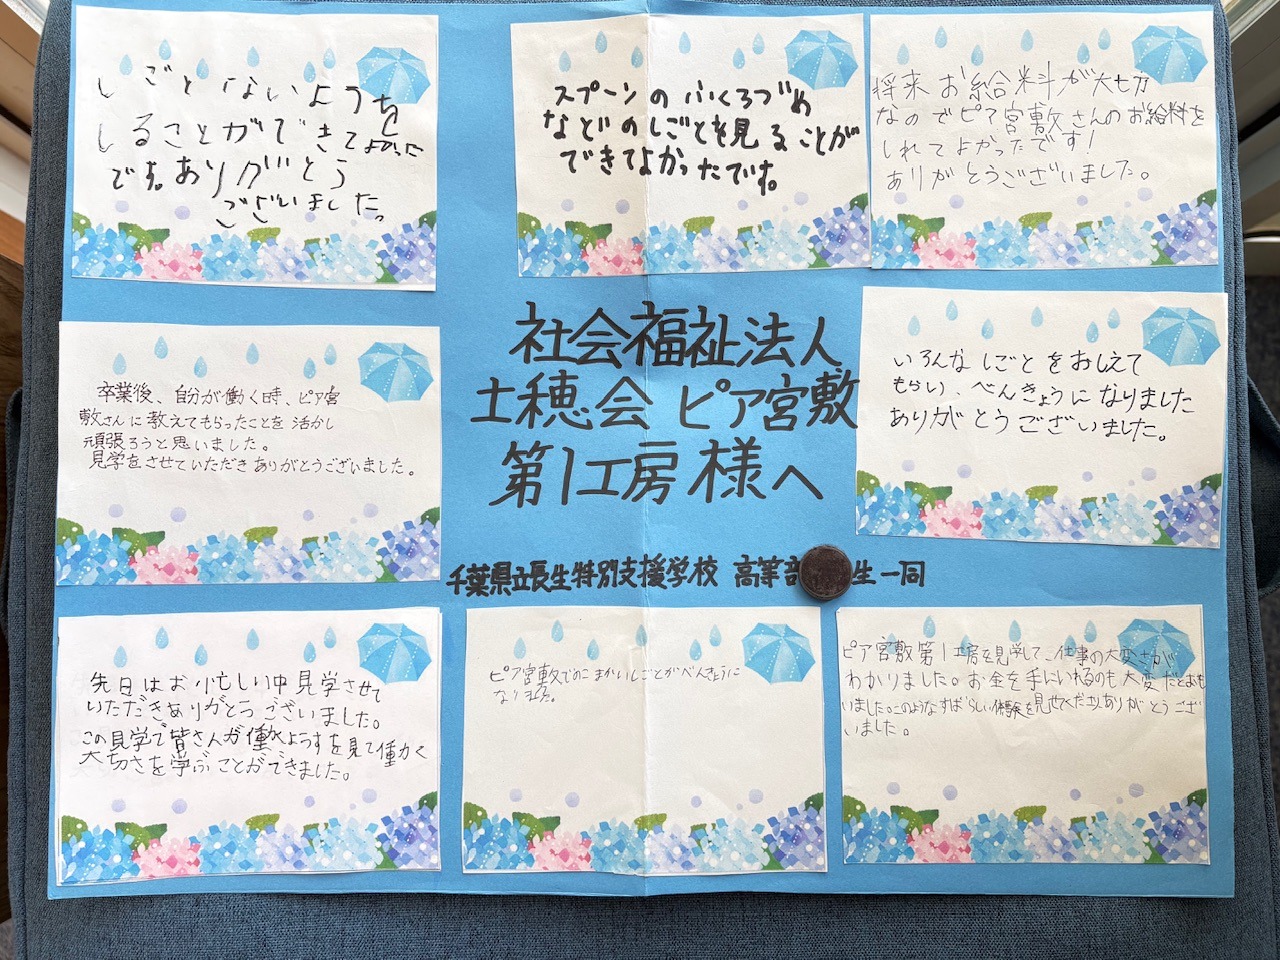 しごとないようち
しることができてよかった
です。ありがとう
ございました。
スプーンのふくろづめ
などのしごとを見ることが
できてよかったです。
将来お給料が大切
なのでピア宮敷さんのお給料を
しれてよかったです!
ありがとうございました。
社会福祉法人
土穂会 ピア宮敷
第1工房様へ
卒業後、自分が働く時、ピア宮
敷さんに教えてもらったことを活かし
頑張ろうと思いました。
見学をさせていただきありがとうございました。
いろんなしごとをおしえて
もらい、べんきょうになりました
ありがとうございました。
千葉県立長生特別支援学校 高等部 生一同
先日はお忙しい中見学させて
いただきありがとうございました。
この見学で皆さんが働くようすを見て働く
大切さを学ぶことができました。
ピア宮敷でのこまかいしごとがべんきょうに
なり
ピア宮敷第1工房を見学して、仕事の大変さが
わかりました。お金を手にいれるのも大変だとおも
いました。このようなすばらしい体験を見せてくだありがとうござ
いました。